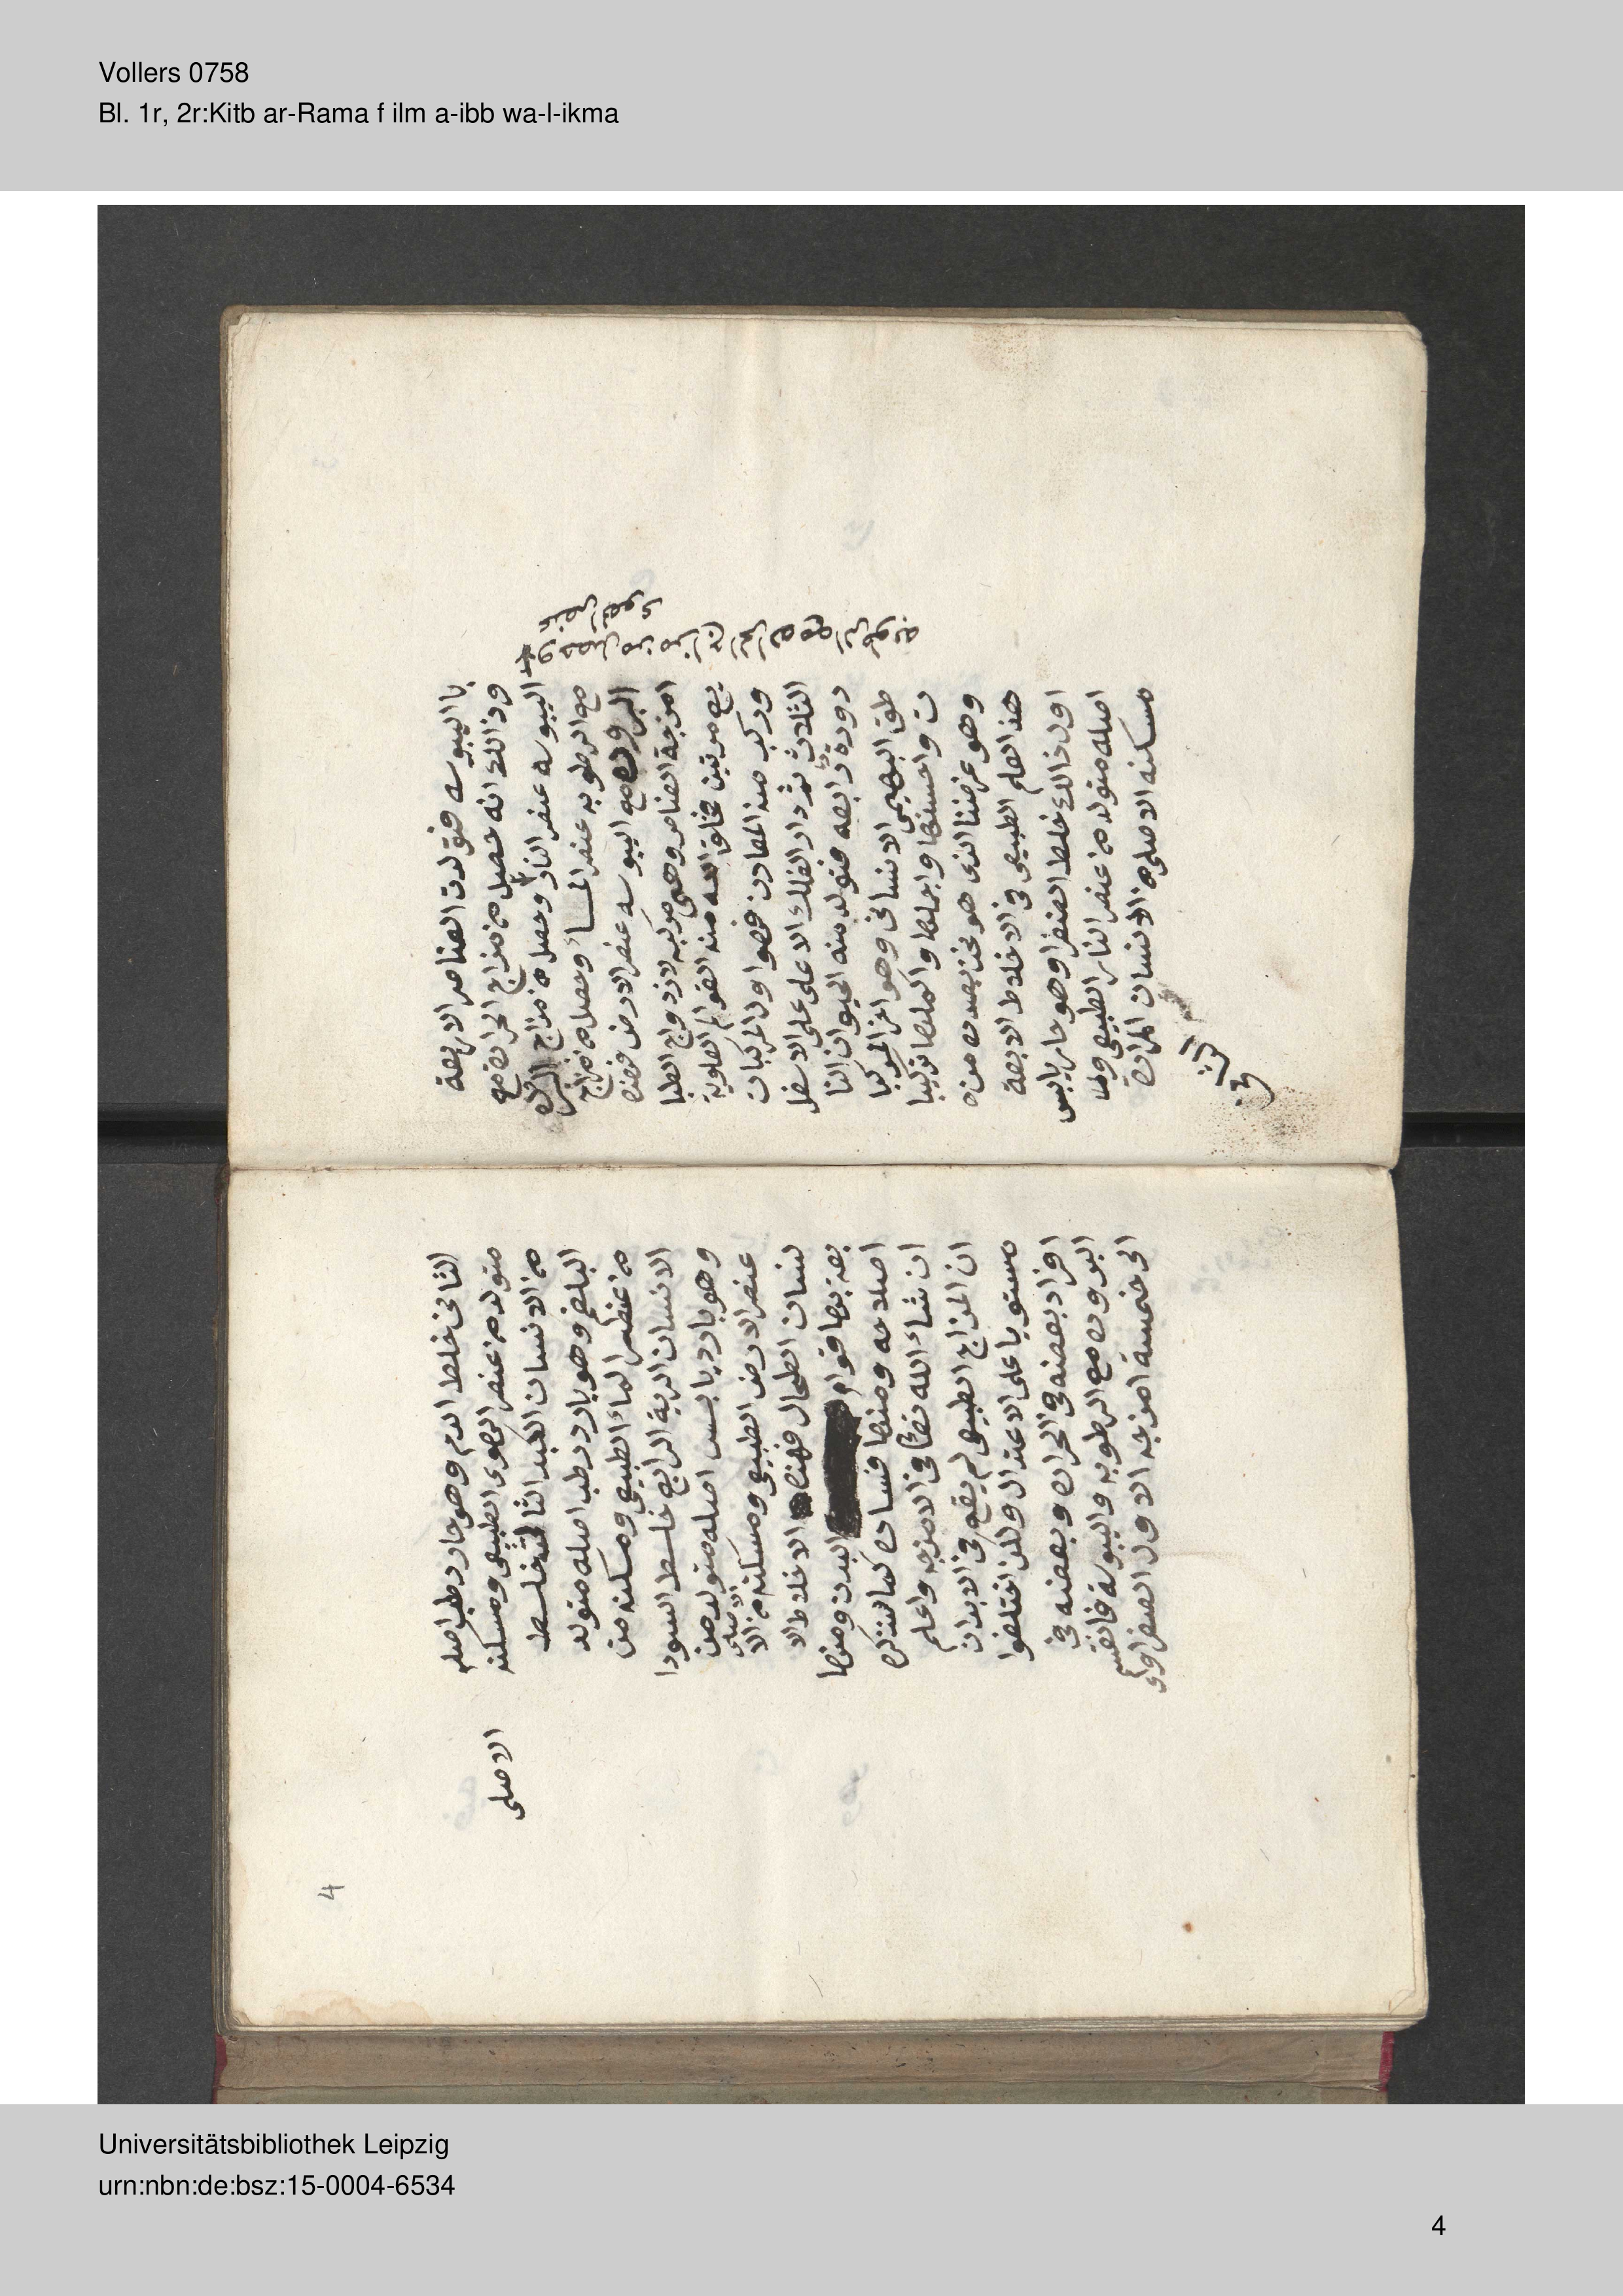 Vollers 0758
Bl. 1r, 2r:Kitb ar-Rama f ilm a-ibb wa-l-ikma
با اليبوسه فتولدت العناصر الاربعة
وذالك انه حصل من مزاج الحراره مع
اليبوسه عنصر النار وحصل من مزاج البروده
مع الرطوبه عنصر الماء وحصل من مزاج
البروده مع اليبوسه عنصر الارض فهذه
امزجة العناصر وهى مركبه لازدواج الطبا
يع مرتين فخلق الله منه العوالم العلوية
وركب منه المعادن فهو اول المركبات
الثلاث ثم دار الفلك الاعلى على الاسفل
دورة رابعه فتولد منه الحيوان النا
طق البهيمى الانسانى وهو اخر المركبا
ت واحسنها وابسطها واكملها تركيبا
وهو غرضنا الذى هو نحن بصدده من
هذا العلم الطبيعى فى الاخلاط الاربعة
اول ذالك خلط الصفرا وهو حار يابس
اصله متولد من عنصر النار الطبيعى و
مسكنه الاصلى من الانسان المرارة
وحصل من مزاج الحراره مع الرطوبه
عنصر الهوى
الثانى خلط الدم وهو حار رطب اصله
متولد من عنصر الهوى الطبيعى ومسكنه
الاصلى
من الانسان الكبد الثالث خلط
البلغم وهو بارد رطب اصله متولد
من عنصر الماء الطبيعى ومسكنه من
الانسان الرية الرابع خلط السودا
وهو بارد يابس اصله متولد من
عنصر الارض الطبيعى ومسكنه الاصلى من الا
نسان الطحال فهذه الاخلاط الا
بعة بها قوام البدن ومنها
اصلاحه ومنها فساده كما سنذكره
ان شاء الله تعالى فى الامزجه واعلم
ان المزاج الطبيعى لم يقع فى الابدان
مستويا على الاعتدال ولكن اختلفوا
افراد بعضه فى الحراره وبعضه فى
البروده مع الرطوبه واليبوسة فانقسم
الى خمسة امزجه الاول الصفراوى
4
Universitätsbibliothek Leipzig
urn:nbn:de:bsz:15-0004-6534
4